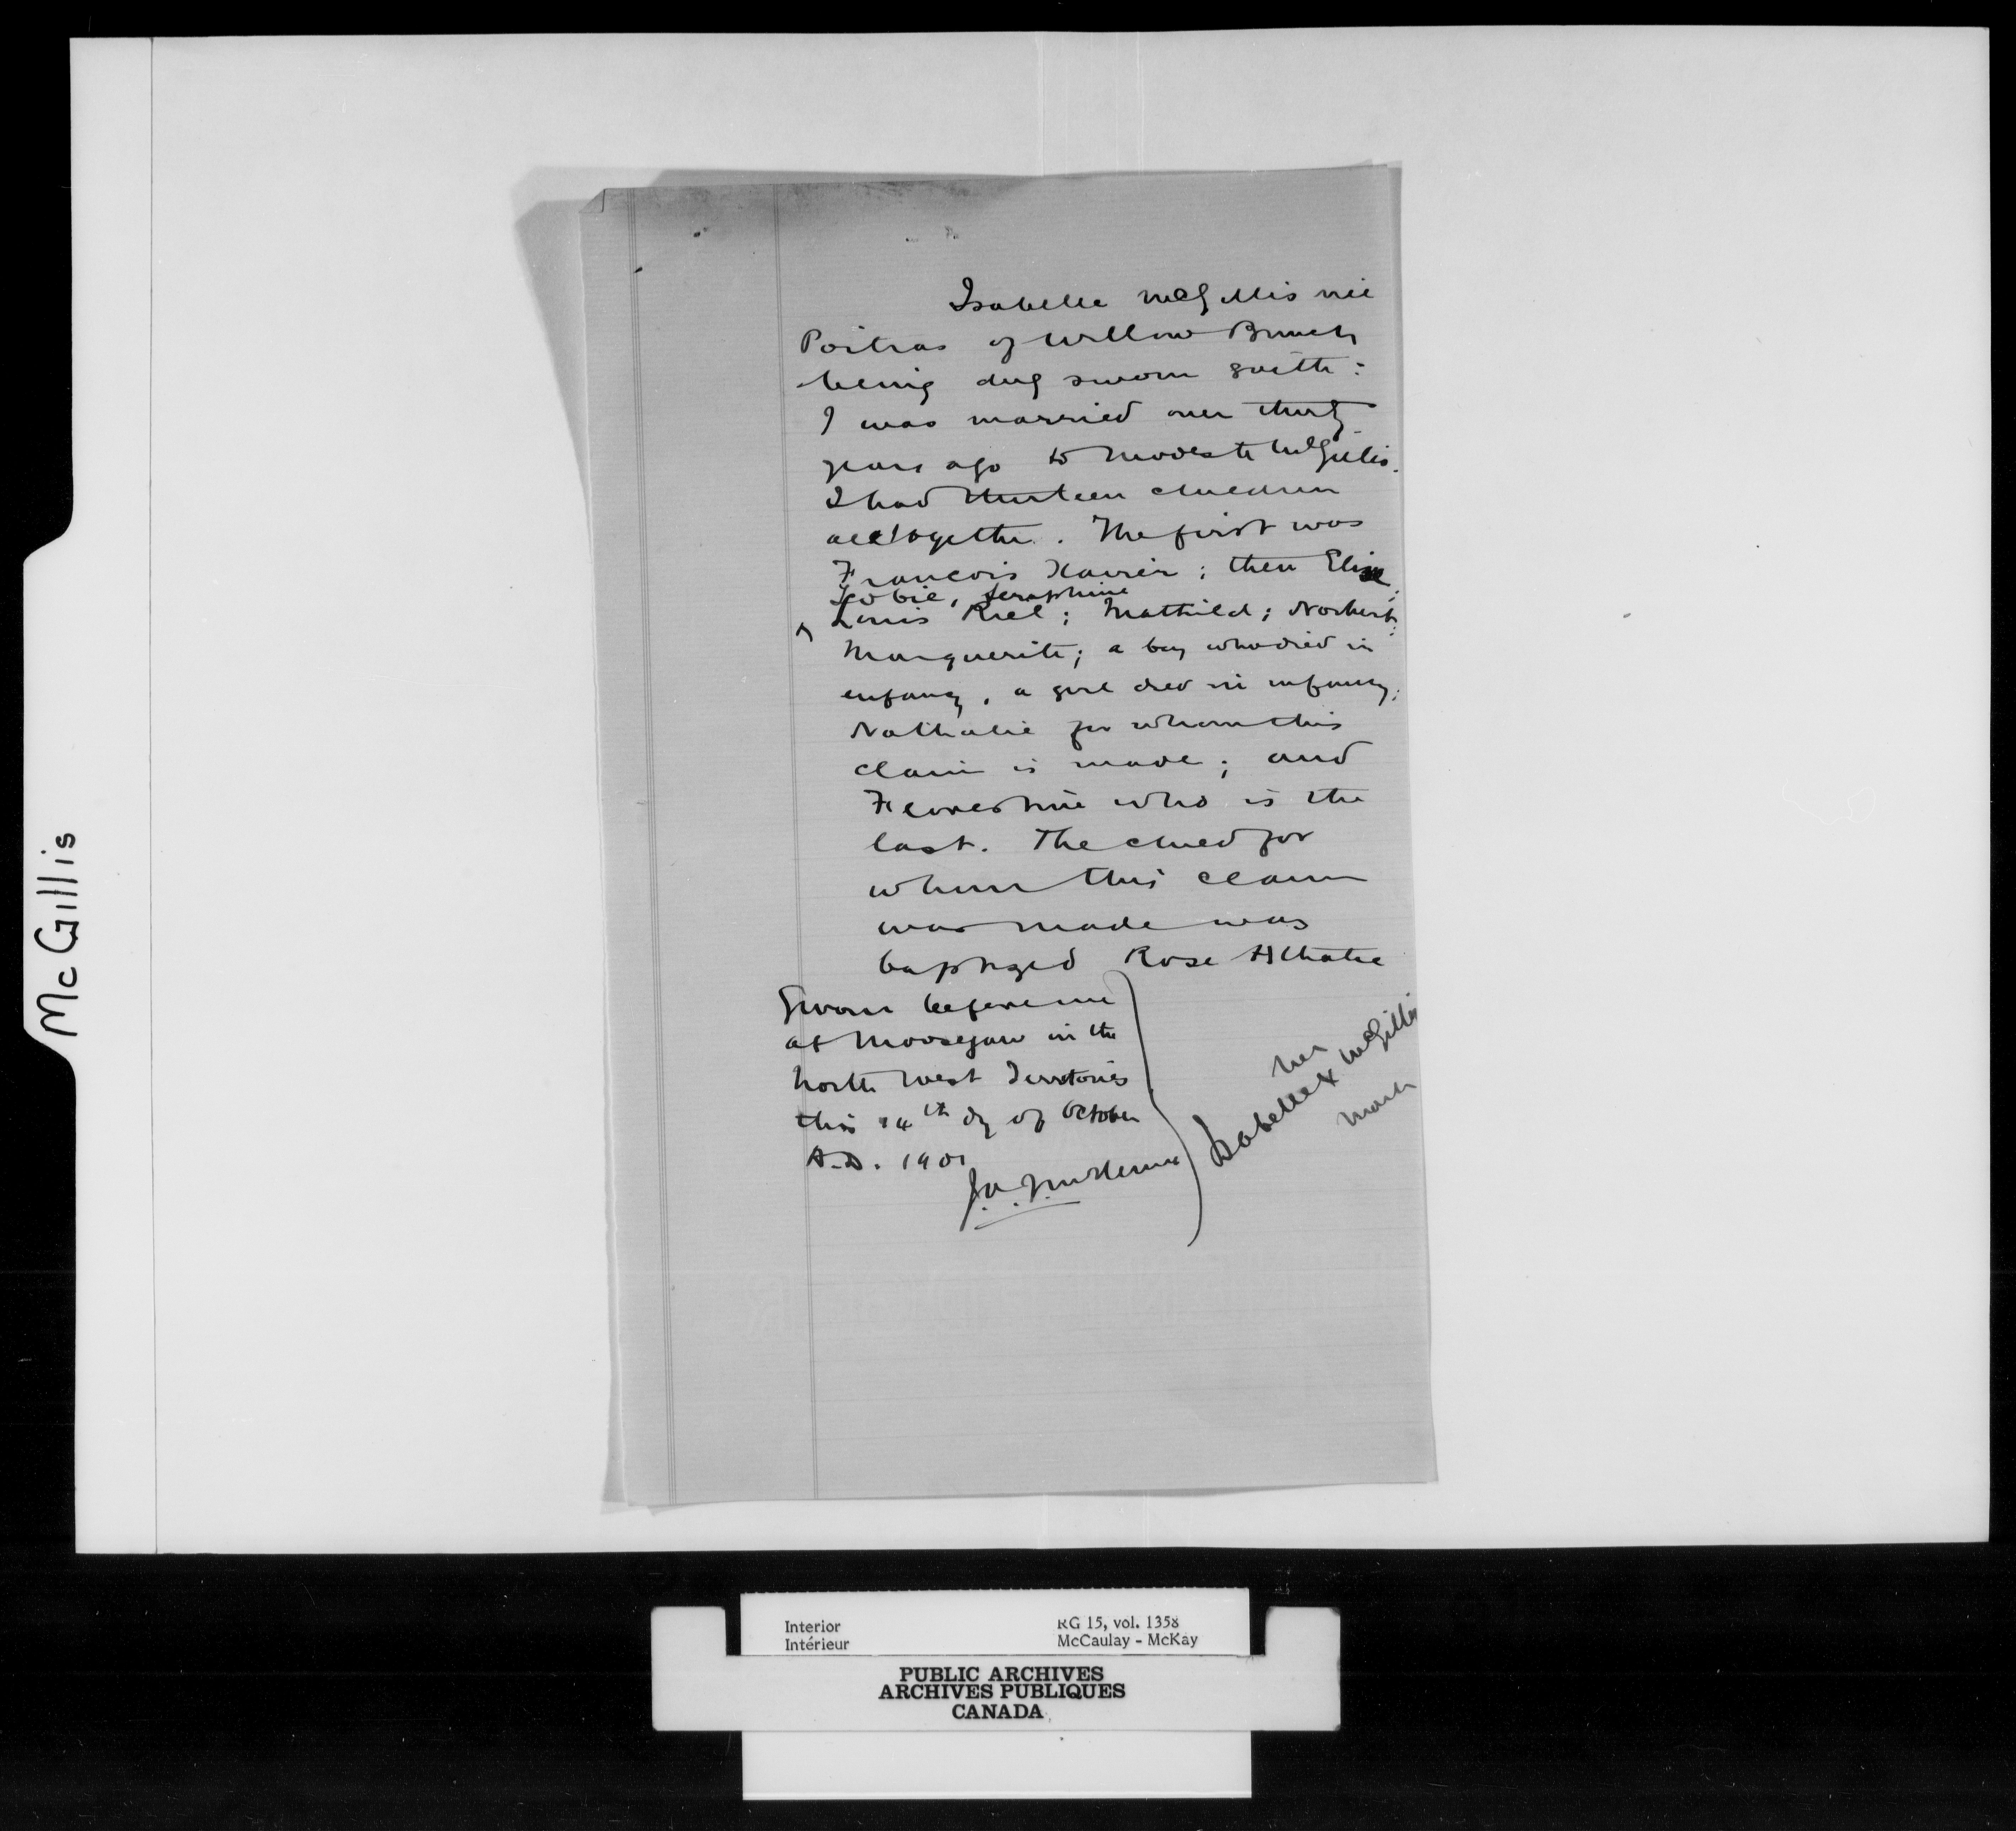 McGillis
Isabelle McGillis née
Poitras of Willow Bunch
being duly sworn saith:
I was married over thirty
years ago to Modeste McGillis.
I had thirteen children
altogether. The first was
Francois Xavier; then Elise;
Scobie, Seraphine
^ Louis Riel; Mathild; Norbert;
Marguerite; a boy who died in
enfancy, a girl died in infancy;
Nathalie for whom this
claim is made; and
Florestine who is the
last. The child for
whom this claim
was made was
baptized Rose
Sworn before me
at Moosejaw in the
North West Territories
this 14th dy of October
A.D. 1901
her
Isabelle x McGillis
mark
Interior
Intérieur
RG 15, vol. 1358
McCaulay - McKay
PUBLIC ARCHIVES
ARCHIVES PUBLIQUES
CANADA